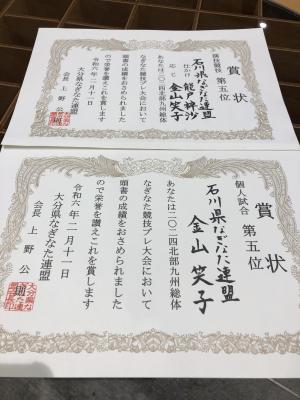 賞状
演技競技 第五位
石川県なぎなた連盟
仕かけ
応じ 金山笑子
あなたは二〇二四北部九州総体
なぎなた競技プレ大会において
頭書の成績をおさめられました
ので栄誉を讃えこれを賞します
令和六年二月十一日
大分県なぎなた連盟
会長 上野公則
賞状
個人試合 第五位
石川県なぎなた連盟
金山笑子
あなたは二〇二四北部九州総体
なぎなた競技プレ大会において
頭書の成績をおさめられました
ので栄誉を讃えこれを賞します
令和六年二月十一日
大分県なぎなた連盟
会長 上野公則